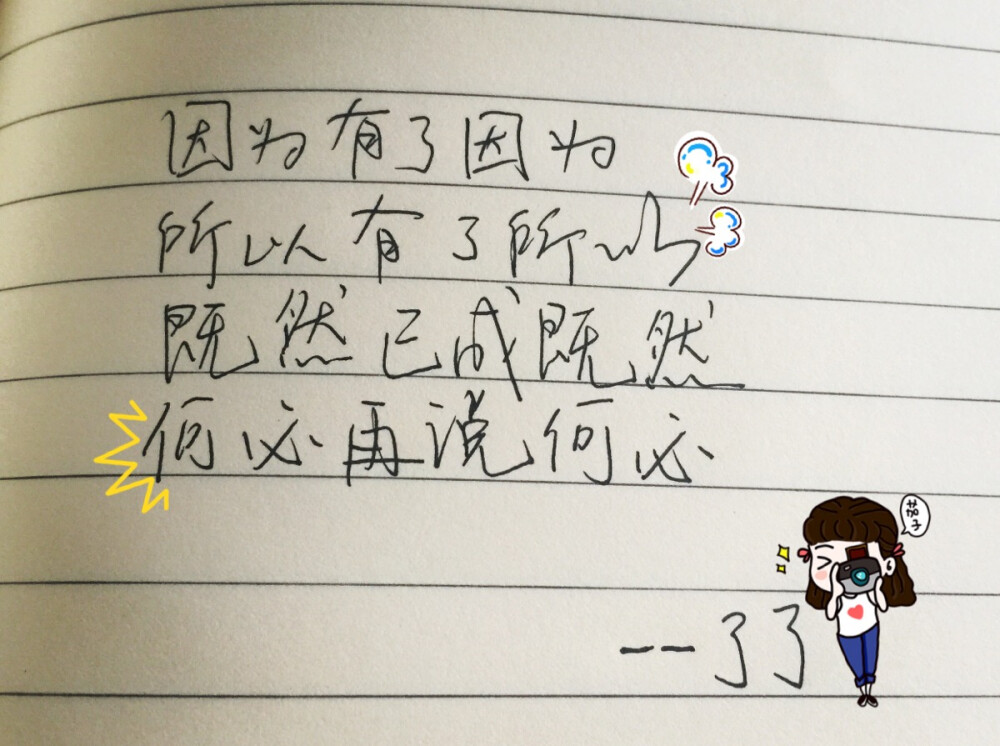 因为有了因为
所以有了所以
既然已成既然
何必再说何必
茄子
--了了